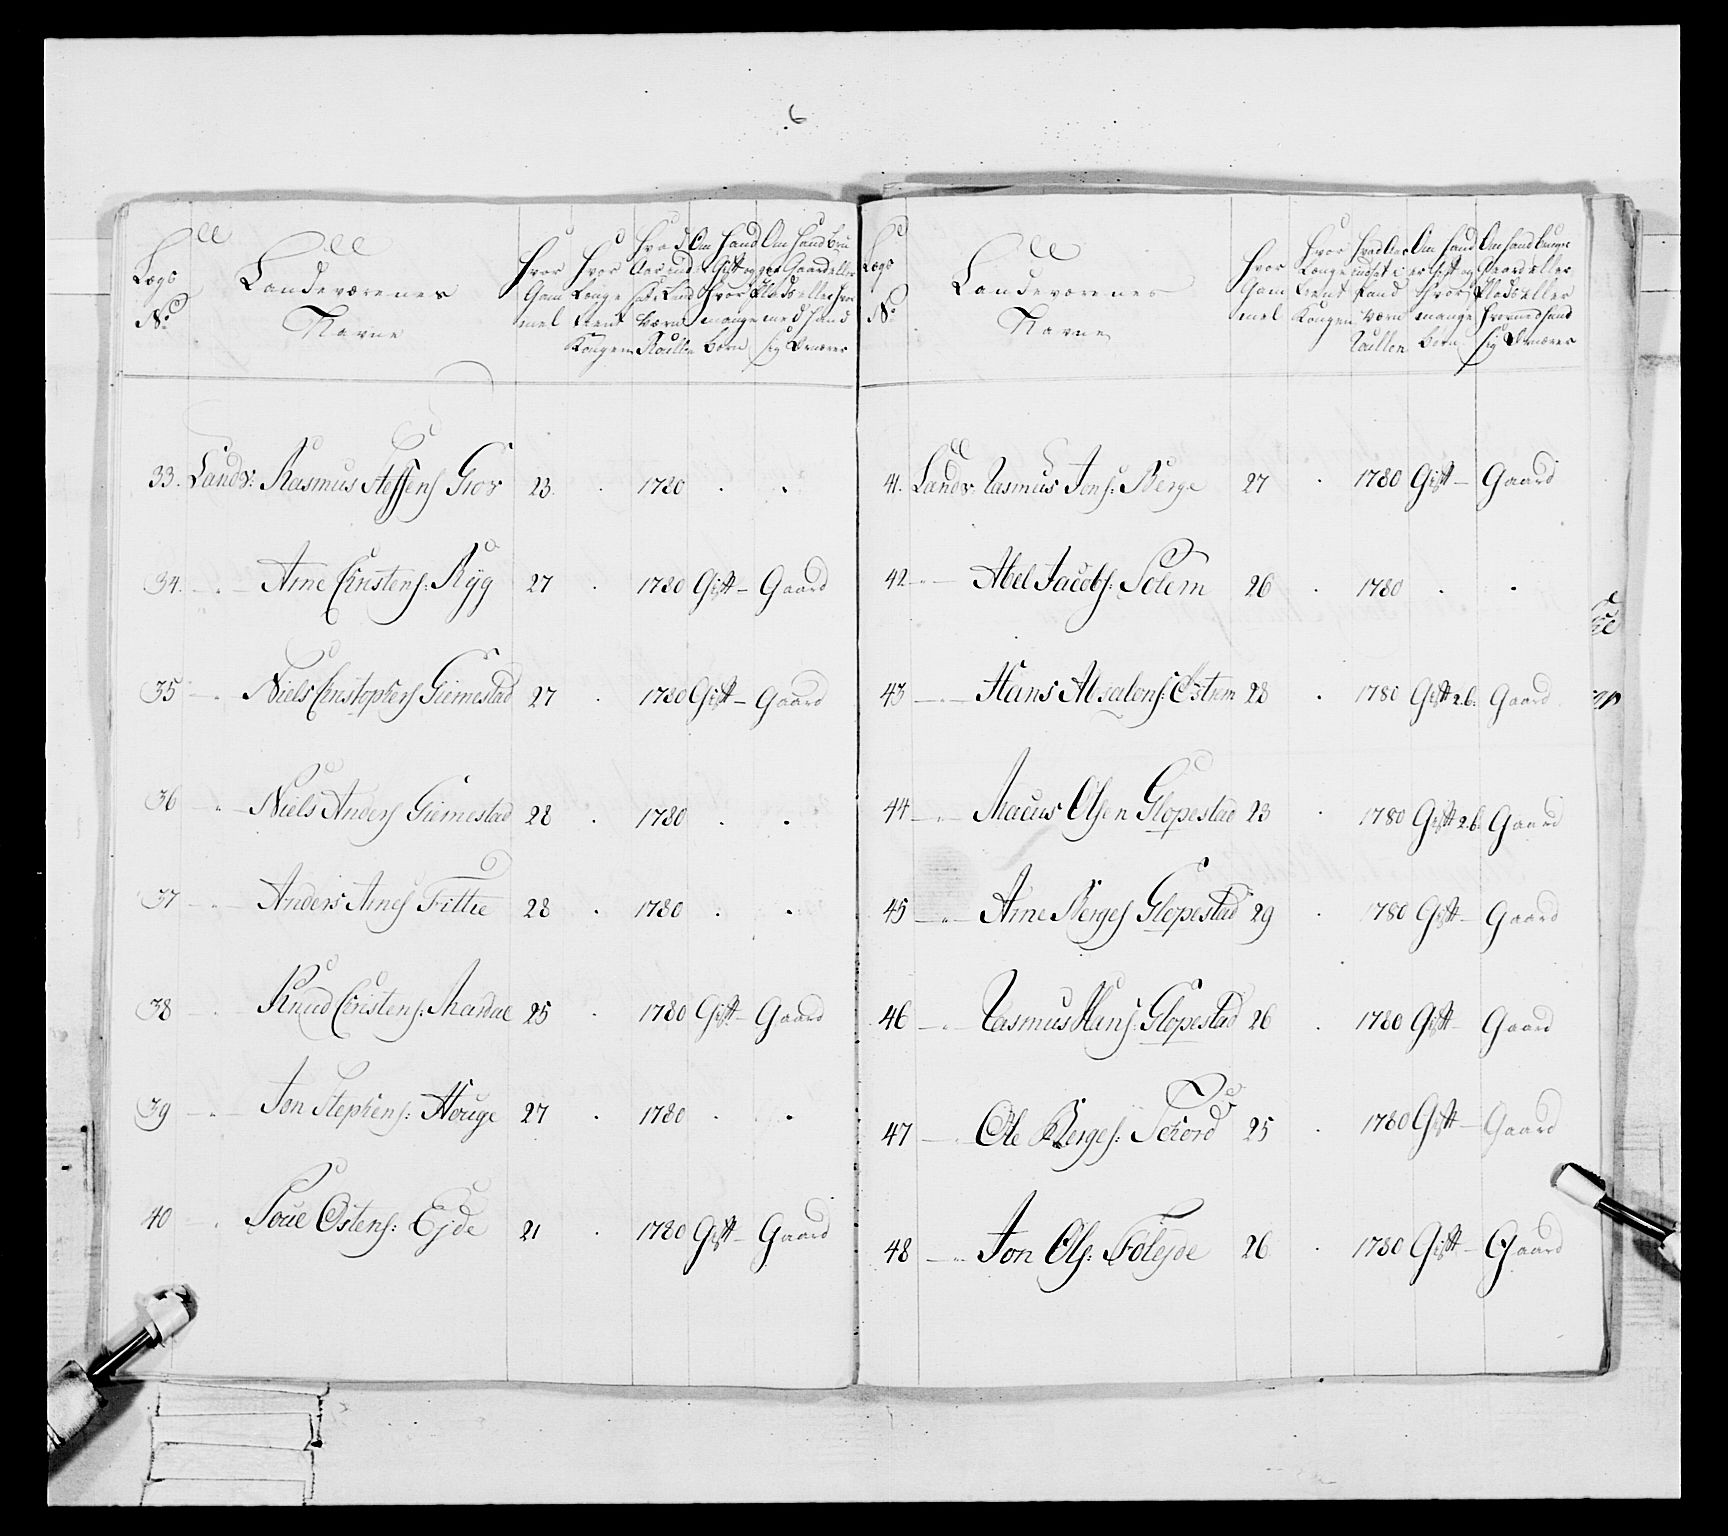 6
Lægs No Landeværenes Navne Hvor Gammel Hvor Længe tient Kongen Hvad Aar ind sat i Land Værn Roullen Om Hand er Gift og Hvor mange børn Om Hand bruger Gaard eller Plads eller Hvor med Hand sig Ernærer
33. Landv: Rasmus Steffens Gror 23. . 1780 . .
34. — " — Arne Christens: Ryg 27 . 1780 Gift — Gaard
35 — " Niels Christophers Giemestad 27 . 1780 Gift — Gaard
36 — " — Niels Anders Giemestad 28 . 1780 . .
37 — " — Anders Arnes Fittie 28 . 1780 . .
38 — " Knud Christens: Mardal 25 . 1780 Gift — Gaard
39 — " — Jon Stephens: Houge 27 . 1780 . .
40 — " Poue Ostens: Ejde 21 . 1780 Gift — Gaard
Lægs No Landeværenes Navne Hvor Gammel Hvor Længe tient Kongen Hvad Aar indsat i Land Værn Roullen Om Hand er Gift og Hvor mange børn Om Hand bruger Gaard eller Plads eller Hvormed Hand sig Ernærer
41. Landv. Rasmus Jons: Berge 27 . 1780 Gift — Gaard
42 — " — Abel Jacobs: Solem 26 . 1780 . .
43 — " — Hans Absalons: Østrem 28 . 1780 Gift 2 b: Gaard
44 — " — Macus Olsen Glopestad 23 . 1780 Gift 2 b. Gaard
45 — " — Arne Berges Glopestad 29 . 1780 Gift — Gaard
46 — " Rasmus Hans: Glopestad 26 . 1780 Gift — Gaard
47 — " Ole Berges: Schord 25 . 1780 Gift — Gaard
48 — " Jon Ols: Folejde 26 . 1780 Gift — Gaard